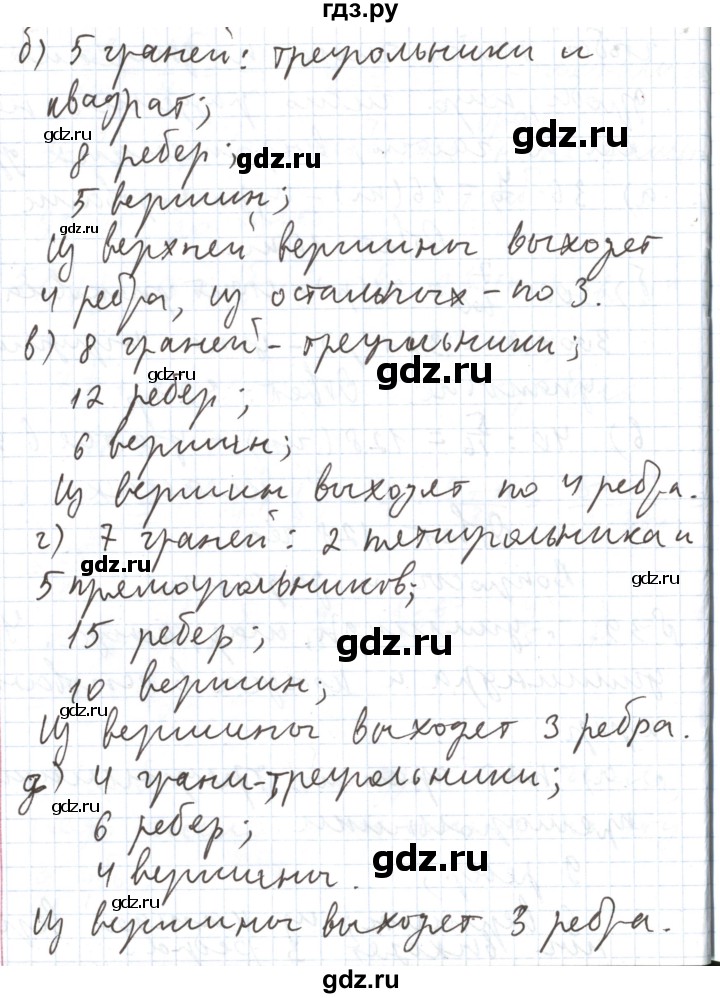 гдз.ру
б) 5 граней: треугольники и
квадрат;
gdz.ru
8 ребер;
gdz.ru
5 вершин;
gdz.ru
Из верхней вершины выходят
4 ребра, из остальных – по 3.
в) 8 граней – треугольники;
gdz.ru
gdz.ru
12 ребер;
6 вершин;
Из вершин выходят по 4 ребра.
г) 7 граней: 2 пятиугольника и
gdz.ru
gdz.ru
5 прямоугольников;
15 ребер;
gdz.ru
10 вершин;
gdz.ru
Из вершины выходят 3 ребра.
д) 4 грани – треугольники;
gdz.ru
6 ребер;
gdz.ru
4 вершины.
Из вершины выходят 3 ребра.
gdz.ru